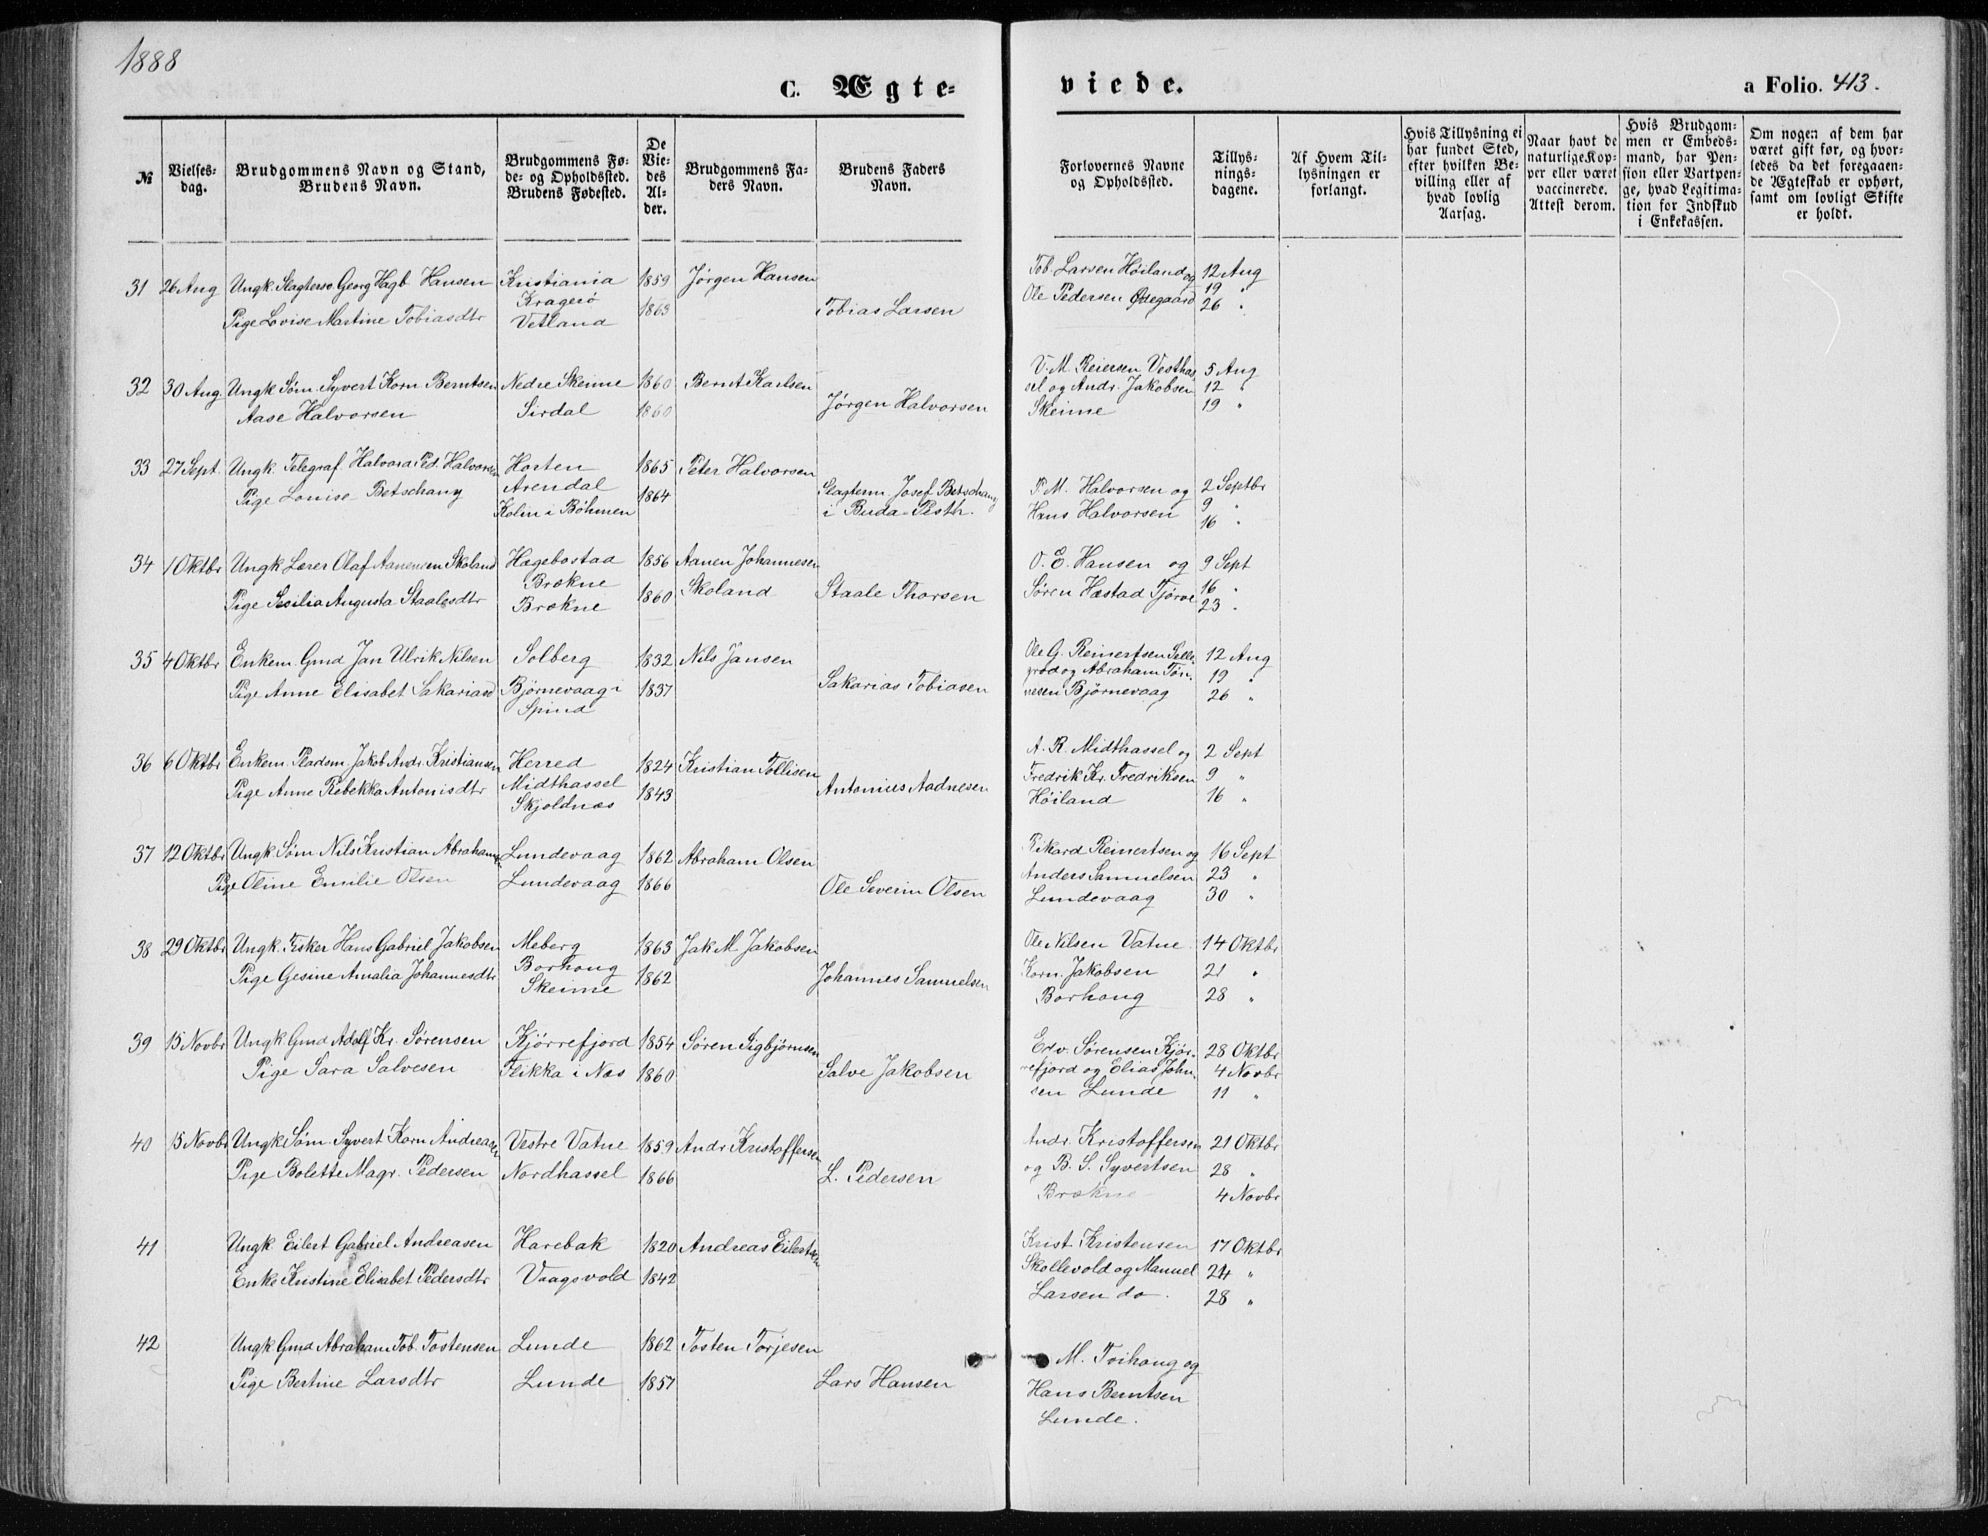 1888
C. Ægte-
viede.
a Folio. 413.
№
Vielses-
dag.
Brudgommens Navn og Stand,
Brudens Navn.
Brudgommens Fø-
de- og Opholdssted.
Brudens Fødested.
De
Vie-
des
Al-
der.
Brudgommens Fa-
ders Navn.
Brudens Faders
Navn.
Forlovernes Navne
og Opholdssted.
Tillys-
nings-
dagene.
Af Hvem Til-
lysningen er
forlangt.
Hvis Tillysning ei
har fundet Sted,
efter hvilken Be-
villing eller af
hvad lovlig
Aarsag.
Naar havt de
naturlige Kop-
per eller været
vaccinerede.
Attest derom.
Hvis Brudgom-
men er Embeds-
mand, har Pen-
sion eller Vartpen-
ge, hvad Legitima-
tion for Indskud
i Enkekassen.
Om nogen af dem har
været gift før, og hvor-
ledes da det foregaaen-
de Ægteskab er ophørt,
samt om lovligt Skifte
er holdt.
31 26 Aug Ungk. Slagtersv. Georg Hagb Hansen Kristiania 1859 Jørgen Hansen Tob. Larsen Høiland og 12 Aug
Kragerø Ole Pedersen Ødegaard 19 "
Pige Lovise Martine Tobiasdtr Vetland 1863 Tobias Larsen 26 "
32 30 Aug Ungk Søm. Syvert Korn. Berntsen Nedre Skeime 1860 Bernt Karlsen V. M. Reiersen Vesthas 5 Aug
Aase Halvorsen Sirdal 1860 Jørgen Halvorsen sel og Andr. Jakobsen 12 "
Skeime 19 "
33 27 Sept Ungk. Telegraf. Halvard Ped. Halvorsen Horten 1865 Peter Halvorsen P. M. Halvorsen og 2 Septbr
Pige Louise Betschany Arendal 1864 Slagterm Josef Betschany Hans Halvorsen 9 "
Kolin i Bøhmen i Buda-Pesth. 16 "
34 1 Oktbr Ungk. Lærer Olaf Aanensen Skoland Hægebostad 1856 Aanen Johannesen O. E. Hansen og 9 Sept
Brøkne Skoland Søren Hæstad Tjørve 16 "
Pige Sesilia Augusta Staalesdtr Brøkne 1860 Staale Thorsen 23 "
35 4 Oktbr Enkem. Gmd Jan Ulrik Nilsen Solberg 1832 Nils Jansen Ole G. Reinertsen Selle- 12 Aug
Pige Anne Elisabet Sakariasd Bjørnevaag i 1837 Sakarias Tobiasen grød og Abraham Tøn- 19 "
Spind nesen Bjørnevaag 26 "
36 6 Oktbr Enkem. Pladsm. Jakob Andr. Kristiansen Herred 1824 Kristian Tollisen A. R. Midthassel og 2 Sept
Pige Anne Rebekka Antonisdtr Midthassel 1843 Antonius Aadnesen Fredrik Kr. Fredriksen 9 "
Skjoldnæs Høiland 16 "
37 12 Oktbr Ungk. Søm Nils Kristian Abrahamsen Lundevaag 1862 Abraham Olsen Rikard Reinertsen og 16 Sept
Pige Oline Emilie Olsen Lundevaag 1866 Ole Severin Olsen Anders Samuelsen 23 "
Lundevaag 30 "
38 29 Oktbr Ungk. Fisker Hans Gabriel Jakobsen Meberg 1863 Jak M. Jakobsen Ole Nilsen Vatne 14 Oktbr
Pige Gesine Amalia Johannesdtr Borhoug 1862 Johannes Samuelsen Korn. Jakobsen 21 "
Skeime Borhoug 28 "
39 15 Novbr Ungk Gmd Adolf Kr. Sørensen Kjørrefjord 1854 Søren Sigbjørnsen Edv. Sørensen Kjør- 28 Oktbr
Pige Sara Salvesen Flikka i Næs 1860 Salve Jakobsen refjord og Elias John- 4 Novbr
sen Lunde 11 "
40 15 Novbr Ungk Søm. Syvert Korn Andreasen Vestre Vatne 1859 Andr Kristoffersen Andr. Kristoffersen 21 Oktbr
Pige Bolette Magr. Pedersen Nordhassel 1866 L. Pedersen og B. S. Syvertsen 28 "
Brøkne 4 Novbr
41 Ungk Eilert Gabriel Andreasen Harebak 1820 Andreas Eilertsen Krist. Kristensen 17 Oktbr
Enke Kristine Elisabet Pedersdtr Vaagsvold 1842 Skollevold og Manuel 21 "
Larsen do. 28 "
42 Ungk Gmd Abraham Tob. Tostensen Lunde 1862 Tosten Torjesen M. Torhoug og
Pige Bertine Larsdtr Lunde 1857 Lars Hansen Hans Berntsen
Lunde.